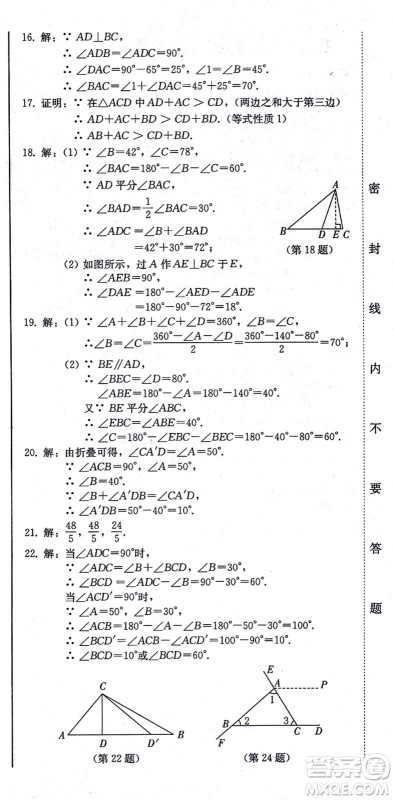 16. 解：∵ AD⊥BC，
∴ ∠ADB=∠ADC=90°.
∴ ∠DAC=90°-65°=25°，∠1=∠B=45°.
∴ ∠BAC=∠1+∠DAC=45°+25°=70°.
17. 证明：∵ 在△ACD 中 AD+AC＞CD，(两边之和大于第三边)
∴ AD+AC+BD＞CD+BD. (等式性质 1)
∴ AB+AC＞CD+BD.
18. 解：(1) ∵ ∠B=42°，∠C=78°，
∴ ∠BAC=180°-∠B-∠C=60°.
∵ AD 平分∠BAC，
∴ ∠BAD=1/2∠BAC=30°.
∴ ∠ADC=∠B+∠BAD
=42°+30°=72°；
A
B D E C
(第 18 题)
(2) 如图所示，过 A 作 AE⊥BC 于 E，
∴ ∠AEB=90°，
∴ ∠DAE=180°-∠AED-∠ADE
=180°-90°-72°=18°.
19. 解：(1) ∵ ∠A+∠B+∠C+∠D=360°，∠B=∠C，
∴ ∠B=∠C=(360°-∠A-∠D)/2=(360°-140°-80°)/2=70°；
(2) ∵ BE∥AD，
∴ ∠BEC=∠D=80°.
∠ABE=180°-∠A=180°-140°=40°.
又∵ BE 平分∠ABC，
∴ ∠EBC=∠ABE=40°.
∴ ∠C=180°-∠EBC-∠BEC=180°-40°-80°=60°.
20. 解：由折叠可得，∠CA′D=∠A=50°.
∵ ∠ACB=90°，∠A=50°，
∴ ∠B=40°.
∵ ∠B+∠A′DB=∠CA′D，
∴ ∠A′DB=50°-40°=10°.
21. 解：48/5，48/5，24/5.
22. 解：当∠ADC=90°时，
∵ ∠ADC=∠B+∠BCD，
∴ ∠BCD=∠ADC-∠B=90°-30°=60°.
当∠ACD′=90°时，
∵ ∠A=50°，∠B=30°，
∴ ∠ACB=180°-∠A-∠B=180°-50°-30°=100°.
∴ ∠BCD′=∠ACB-∠ACD′=100°-90°=10°.
∴ ∠BCD=10°或∠BCD=60°.
C
A D D′ B
(第 22 题)
E
A P
1
B 2 3 C D
F
(第 24 题)
密
封
线
内
不
要
答
题